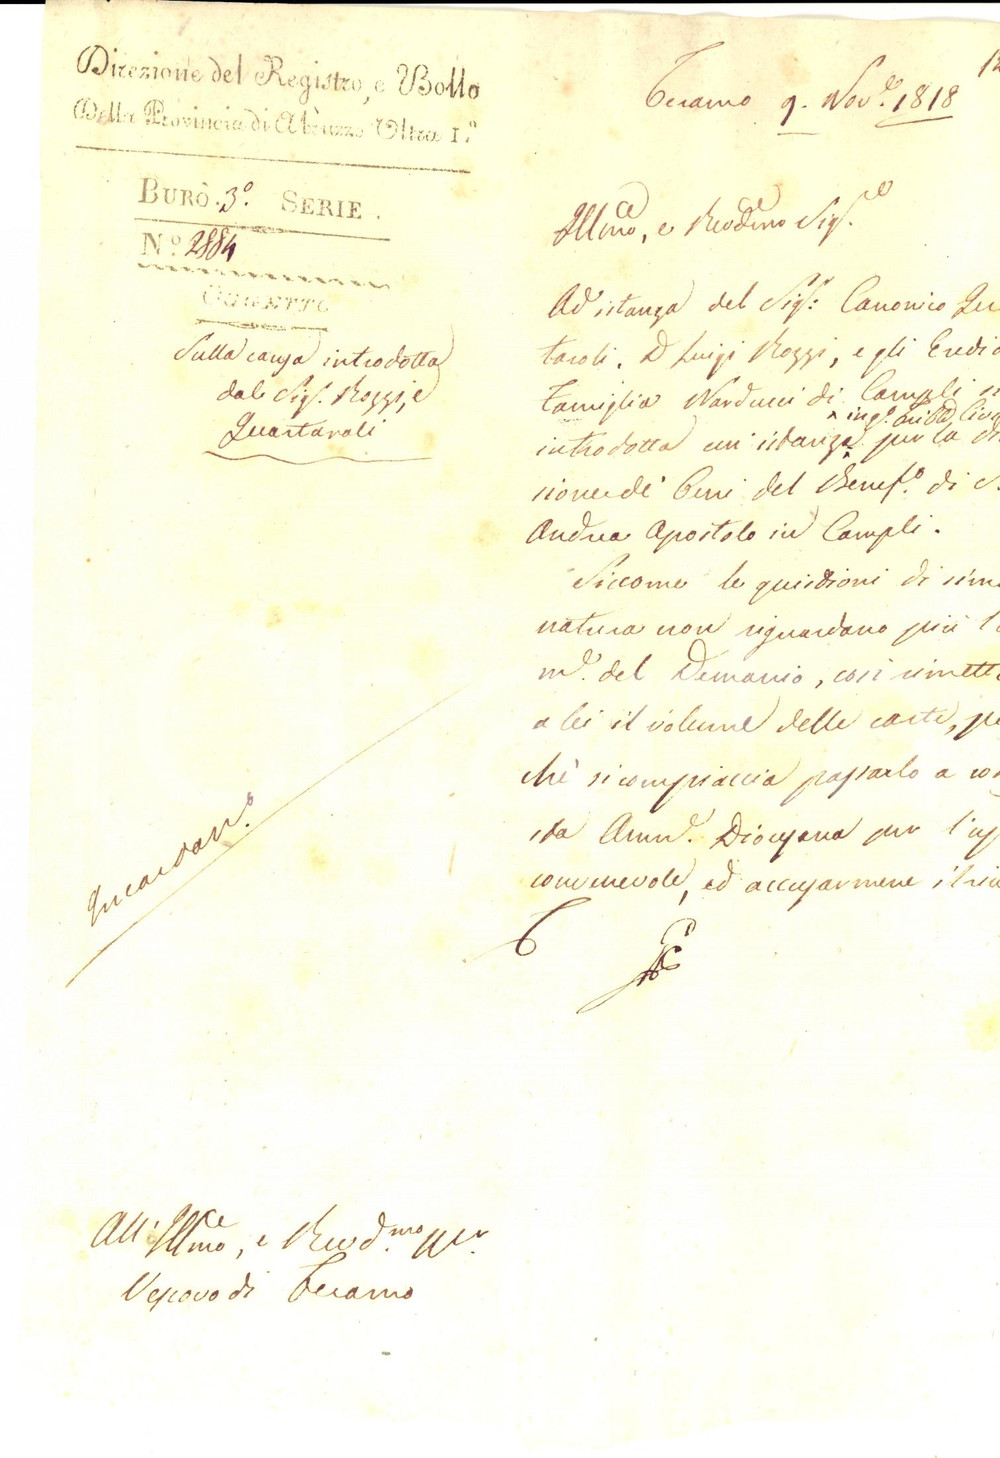 Direzione del Registro, e Bollo
Della Provincia di Abruzzo Ultra I.º
BURÒ. 3º. SERIE.
Nº. 2884
OGGETTO
Sulla causa introdotta
dal Sigr. Rozzi, e
Quartaroli
Teramo 9. Nove. 1818
Illmo, e Revdmo Sigre
Ad istanza del Sigr: Canonico Quar
taroli, D Luigi Rozzi, e gli Eredi
famiglia Narducci di Campli
introdotta un' istanza per la di
sione de' beni del Benefº. di S.
Andrea Apostolo in Campli.
Siccome le quistioni di simi
natura non riguardano più l'a
me. del Demanio, così rimetto
a lei il volume delle carte, pe
chè si compiaccia passarlo a co
sta Amme. Diocesana per l'
convenevole, ed accusarmene il ri
All' Illmo, e Revd.mo
Vescovo di Teramo